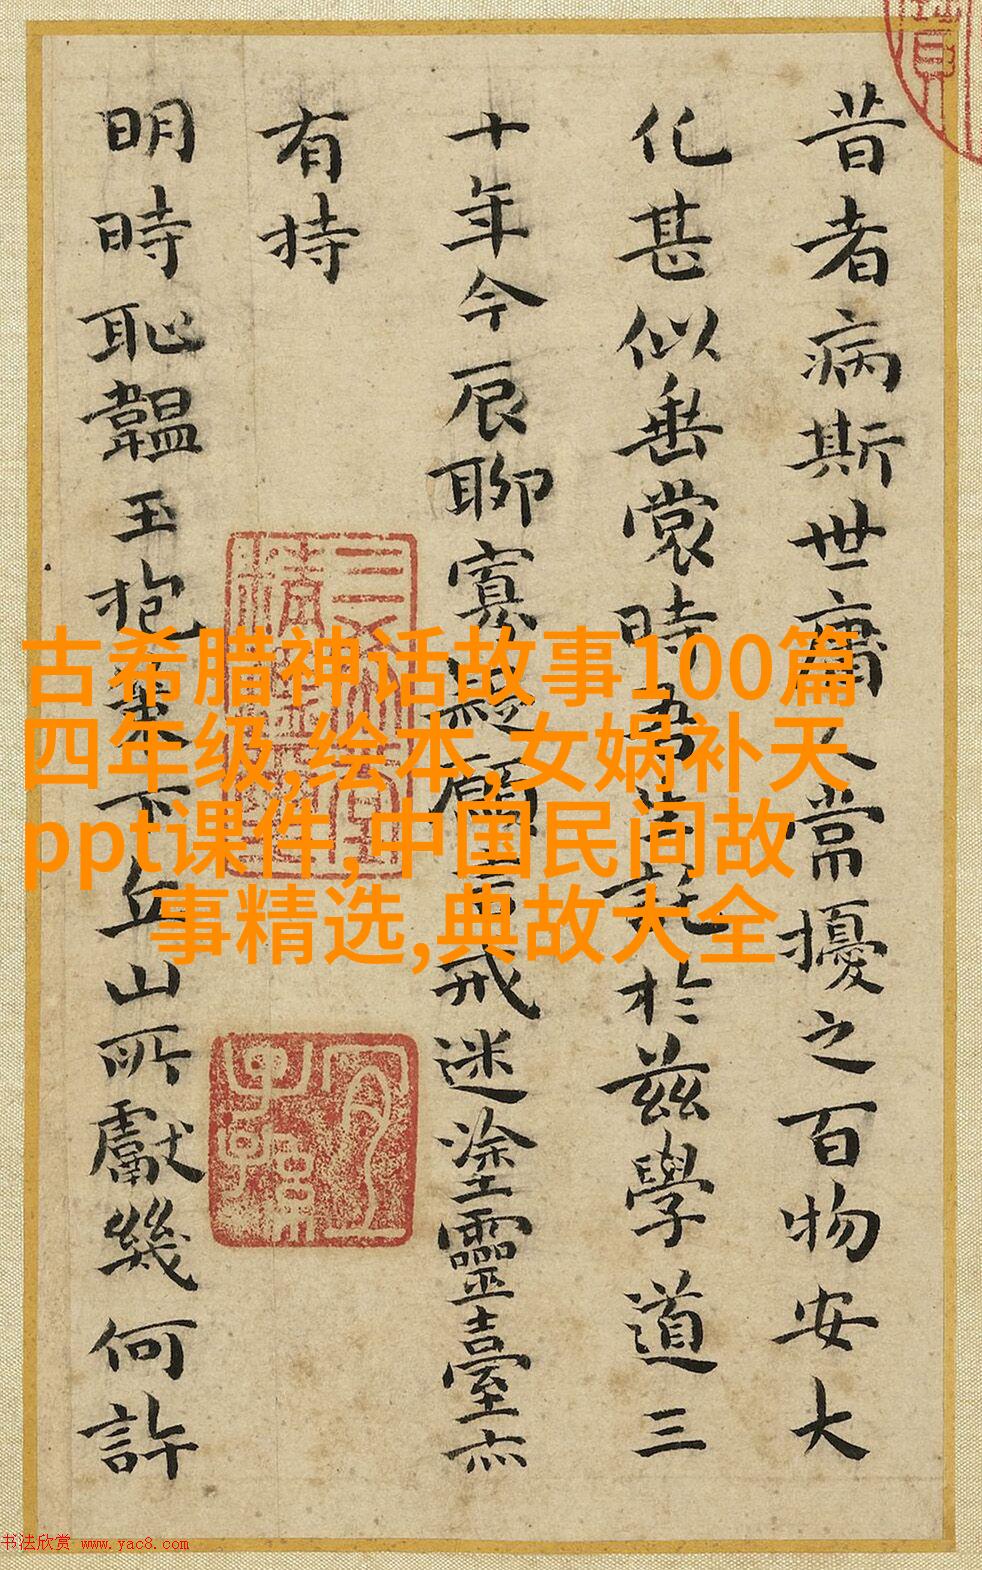 昔者病斯世庸人常擾之百物安大
化甚似垂裳時吾生託於茲學道三
十年今辰聊寡疑顧言戒迷塗靈臺亦
有持
明時恥韞玉抱下丘山所獻幾何許
古希腊神话故事100篇
四年级,绘本,女娲补天
ppt课件,中国民间故
事精选,典故大全
书法欣赏 www.yac8.com